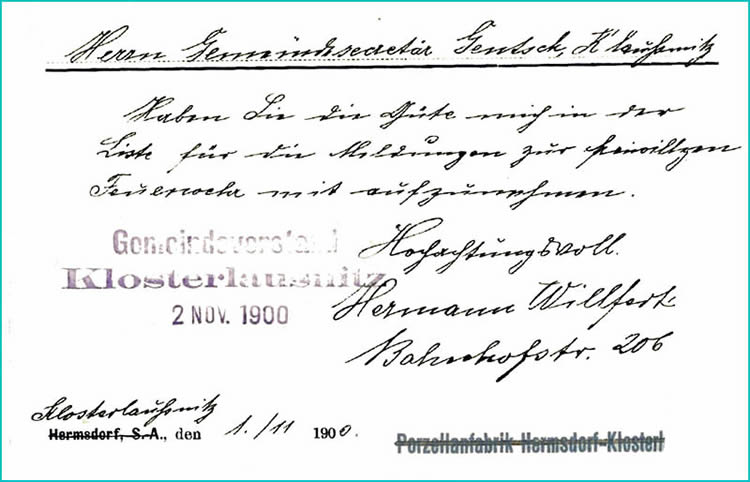 Herrn Gemeindesecretär Gentsch, Klaußnitz
Haben Sie die Güte mich in der
Liste für die Meldungen zur freiwilligen
Feuerwehr mit aufzunehmen.
Hochachtungsvoll.
Hermann Willfert
Bahnhofstr. 206
Gemeindevorstand
Klosterlausnitz
2 NOV. 1900
Klosterlaußnitz
Hermsdorf, S.-A., den 1./11 1900.
Porzellanfabrik Hermsdorf-Klosterl